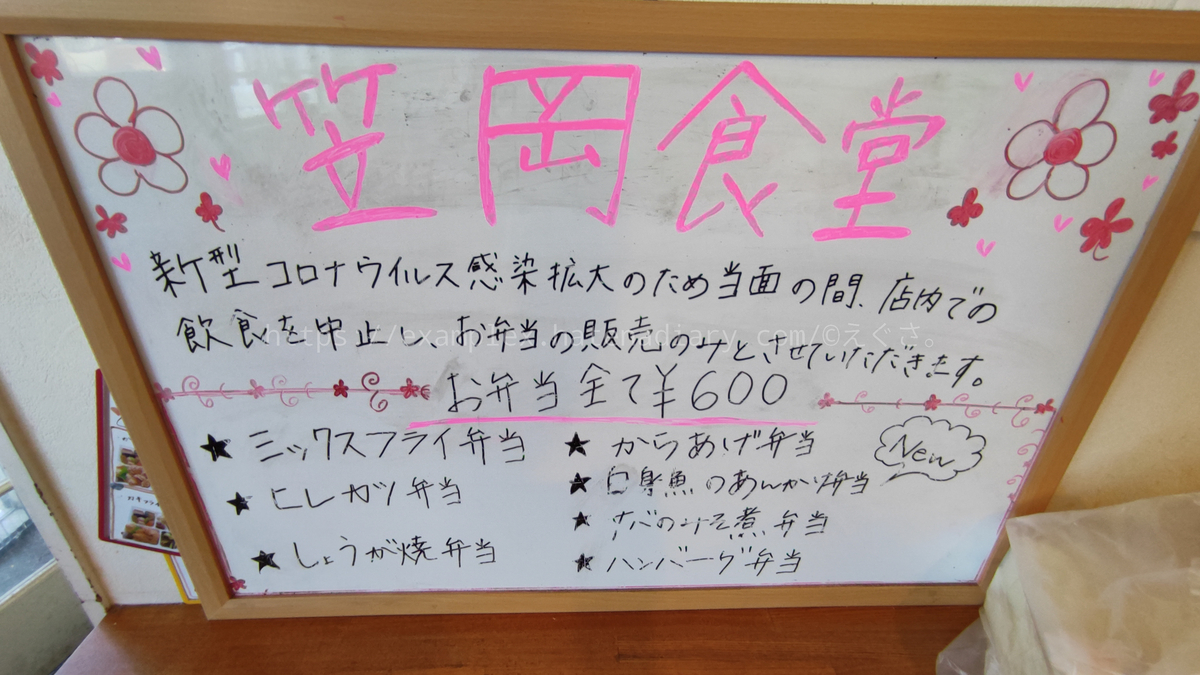 笠岡食堂
新型コロナウイルス感染拡大のため当面の間、店内での
飲食を中止し、お弁当の販売のみとさせていただきます。
お弁当全て¥600
★ ミックスフライ弁当
★ ヒレカツ弁当
★ しょうが焼弁当
★ からあげ弁当
New
★ 白身魚のあんかけ弁当
★ サバのみそ煮弁当
★ ハンバーグ弁当